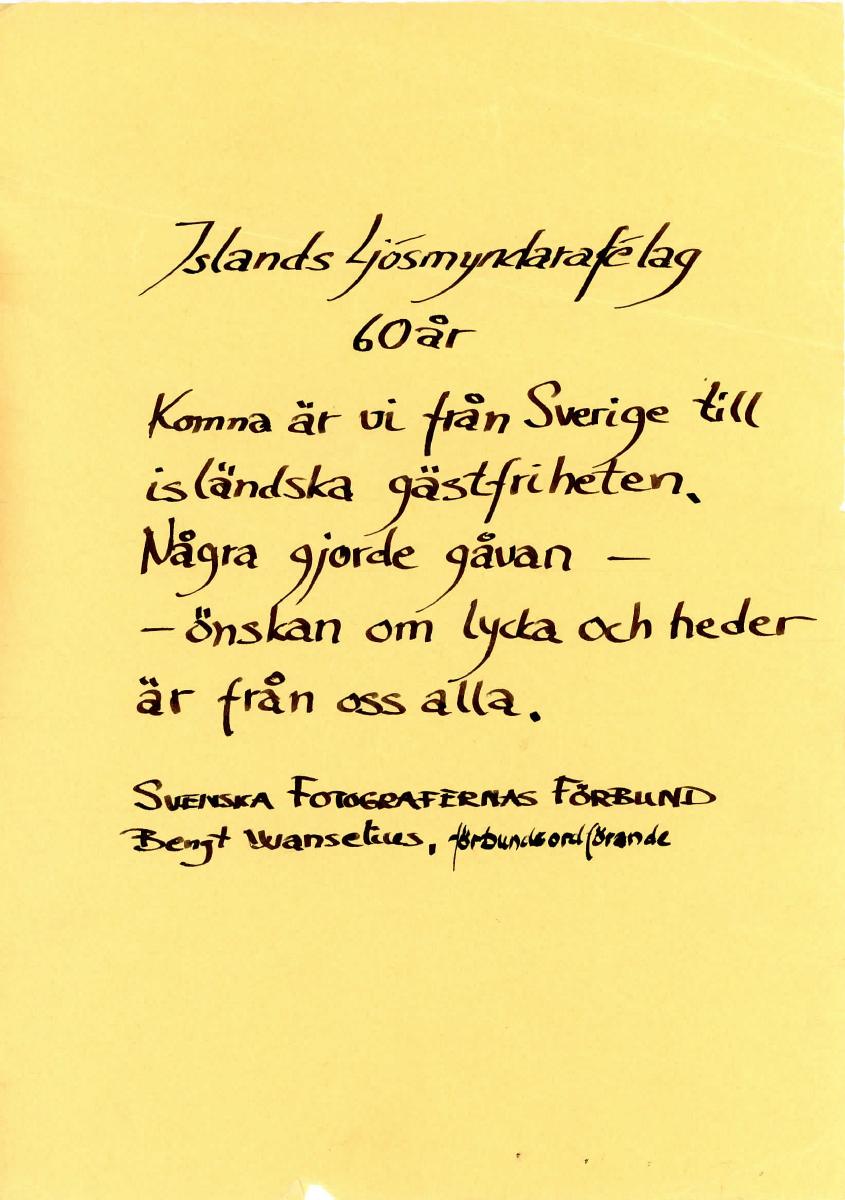 Islands Ljósmyndarafélag
60 år
Komna är vi från Sverige till
isländska gästfriheten.
Några gjorde gåvan —
— önskan om lycka och heder
är från oss alla.
SVENSKA FOTOGRAFERNAS FÖRBUND
Bengt Wanselius, förbundsordförande